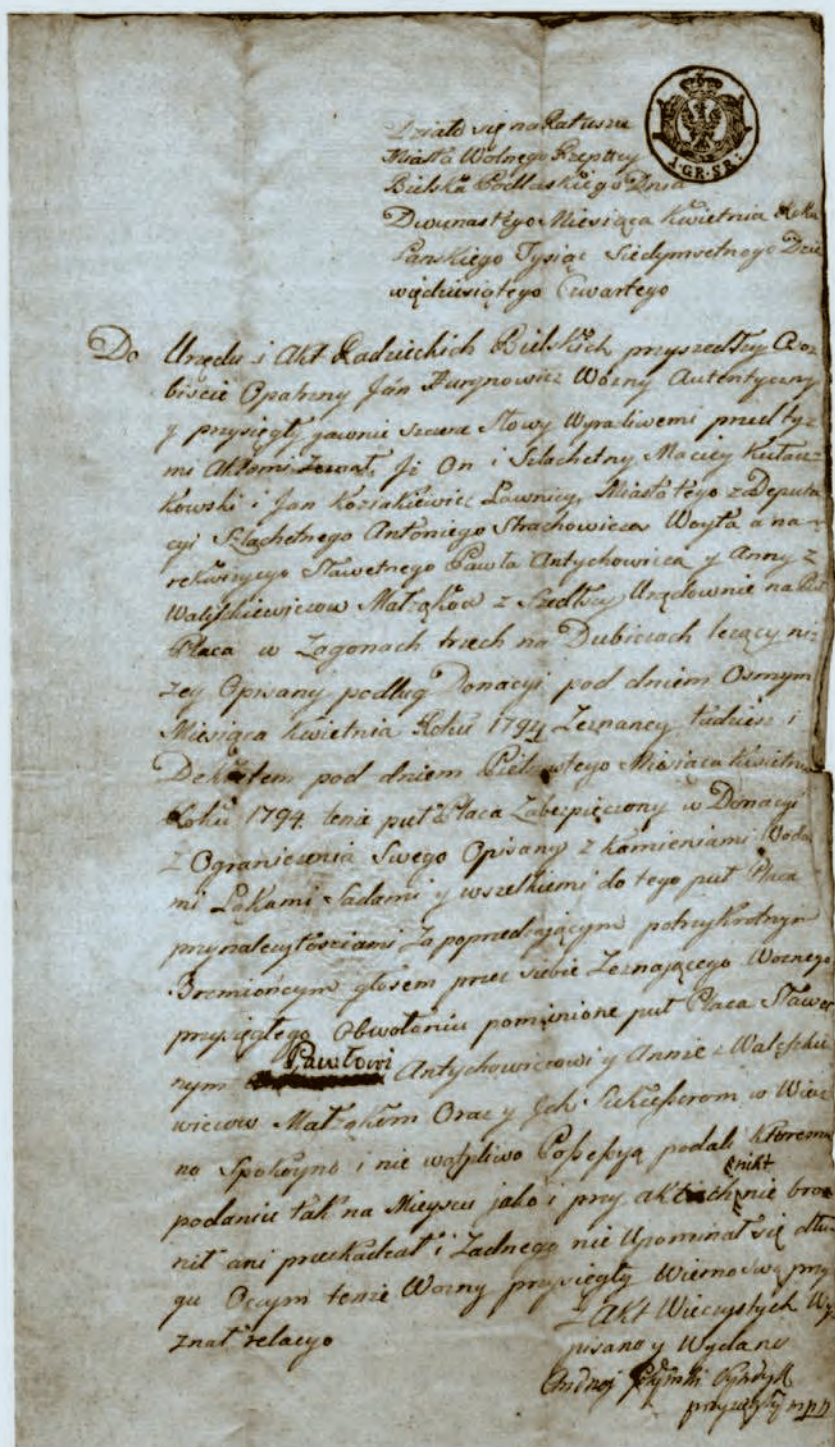 Działo się na Ratuszu
Miasta Wolnego Rzeptttey
Bielska Podlaskiego Dnia
1·GR·SR:
Dwunastego Miesiąca Kwietnia Roku
Panskiego Tysiąc Siedymsetnego Dzie
więdziesiątego Czwartego
Do Urzędu i Akt Radzieckich Bielskich przyszedłszy Oso
biscie Opatrzny Jan Wozny Autentyczny
y przysięgły jawnie szczere Słowy Wyraźliwemi przed ty
mi Aktami Zeznał, Jż On i Szlachetny Maciey
kowski i Jan Koziakiewicz Ławnicy, Miasta tego z Deputa
cyi Szlachetnego Antoniego Strachowicza Woyta a na
rekwizycyo Sławetnego Pawła Antychowicza y Anny z
Małząków z Urzędownie na
Placa w Zagonach trzech na Dubiczach lezący ni
zey Opisany podług Donacyi pod dniem Osmym
Miesiąca Kwietnia Roku 1794 Zeznaney tudziesz i
Dekretem pod dniem Miesiąca Kwietnia
Roku 1794. tenze puł Placa Zabezpieczony w Donacyi
z Ograniczenia Swego Opisany z Kamieniami Woda
mi Łąkami Sadami y wszelkiemi do tego puł Placa
przynalezytosciami Za poprzedzającym potrzykrotnym
Brzmiońcym głosem przez siebie Zeznającego Woznego
przysięgłego Obwołaniu pomienione puł Placa Sławet
nym Pawłowi Antychowiczowi y Annie z
wiczow Małząkom Oraz y Jch Sukceßorom w Wiecz
no Spokoyno i nie wątpliwo Poßeßyą podali któremu
podaniu tak na Mieyscu jako i przy aktach nikt nie bro
nił ani przeszkadzał i Zadnego nie Upominał się dłu
gu Oczym tenze Wozny przysięgły Wierno Swą przy
znał relacyo
z Akt Wieczystych Wy
pisano y Wydano
Andrzej Syndyk
przysięgły mpp